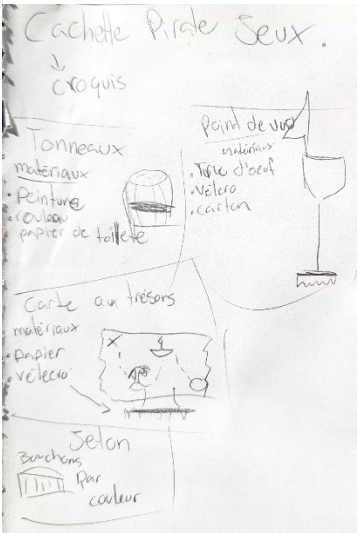 Cachette Pirate Jeux.
croquis
Tonneaux
matériaux
• Peinture
• rouleau
papier de toillete
Point de vue
matériaux
• Truc d'oeuf
• Velcro
• carton
Carte aux trésors
matériaux
• papier
• velecro
Jeton
Bouchons
Par
couleur